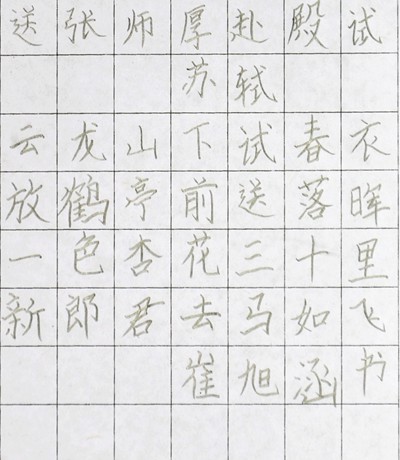 送张师厚赴殿试
苏轼
云龙山下试春衣
放鹤亭前送落晖
一色杏花三十里
新郎君去马如飞
崔旭涵书